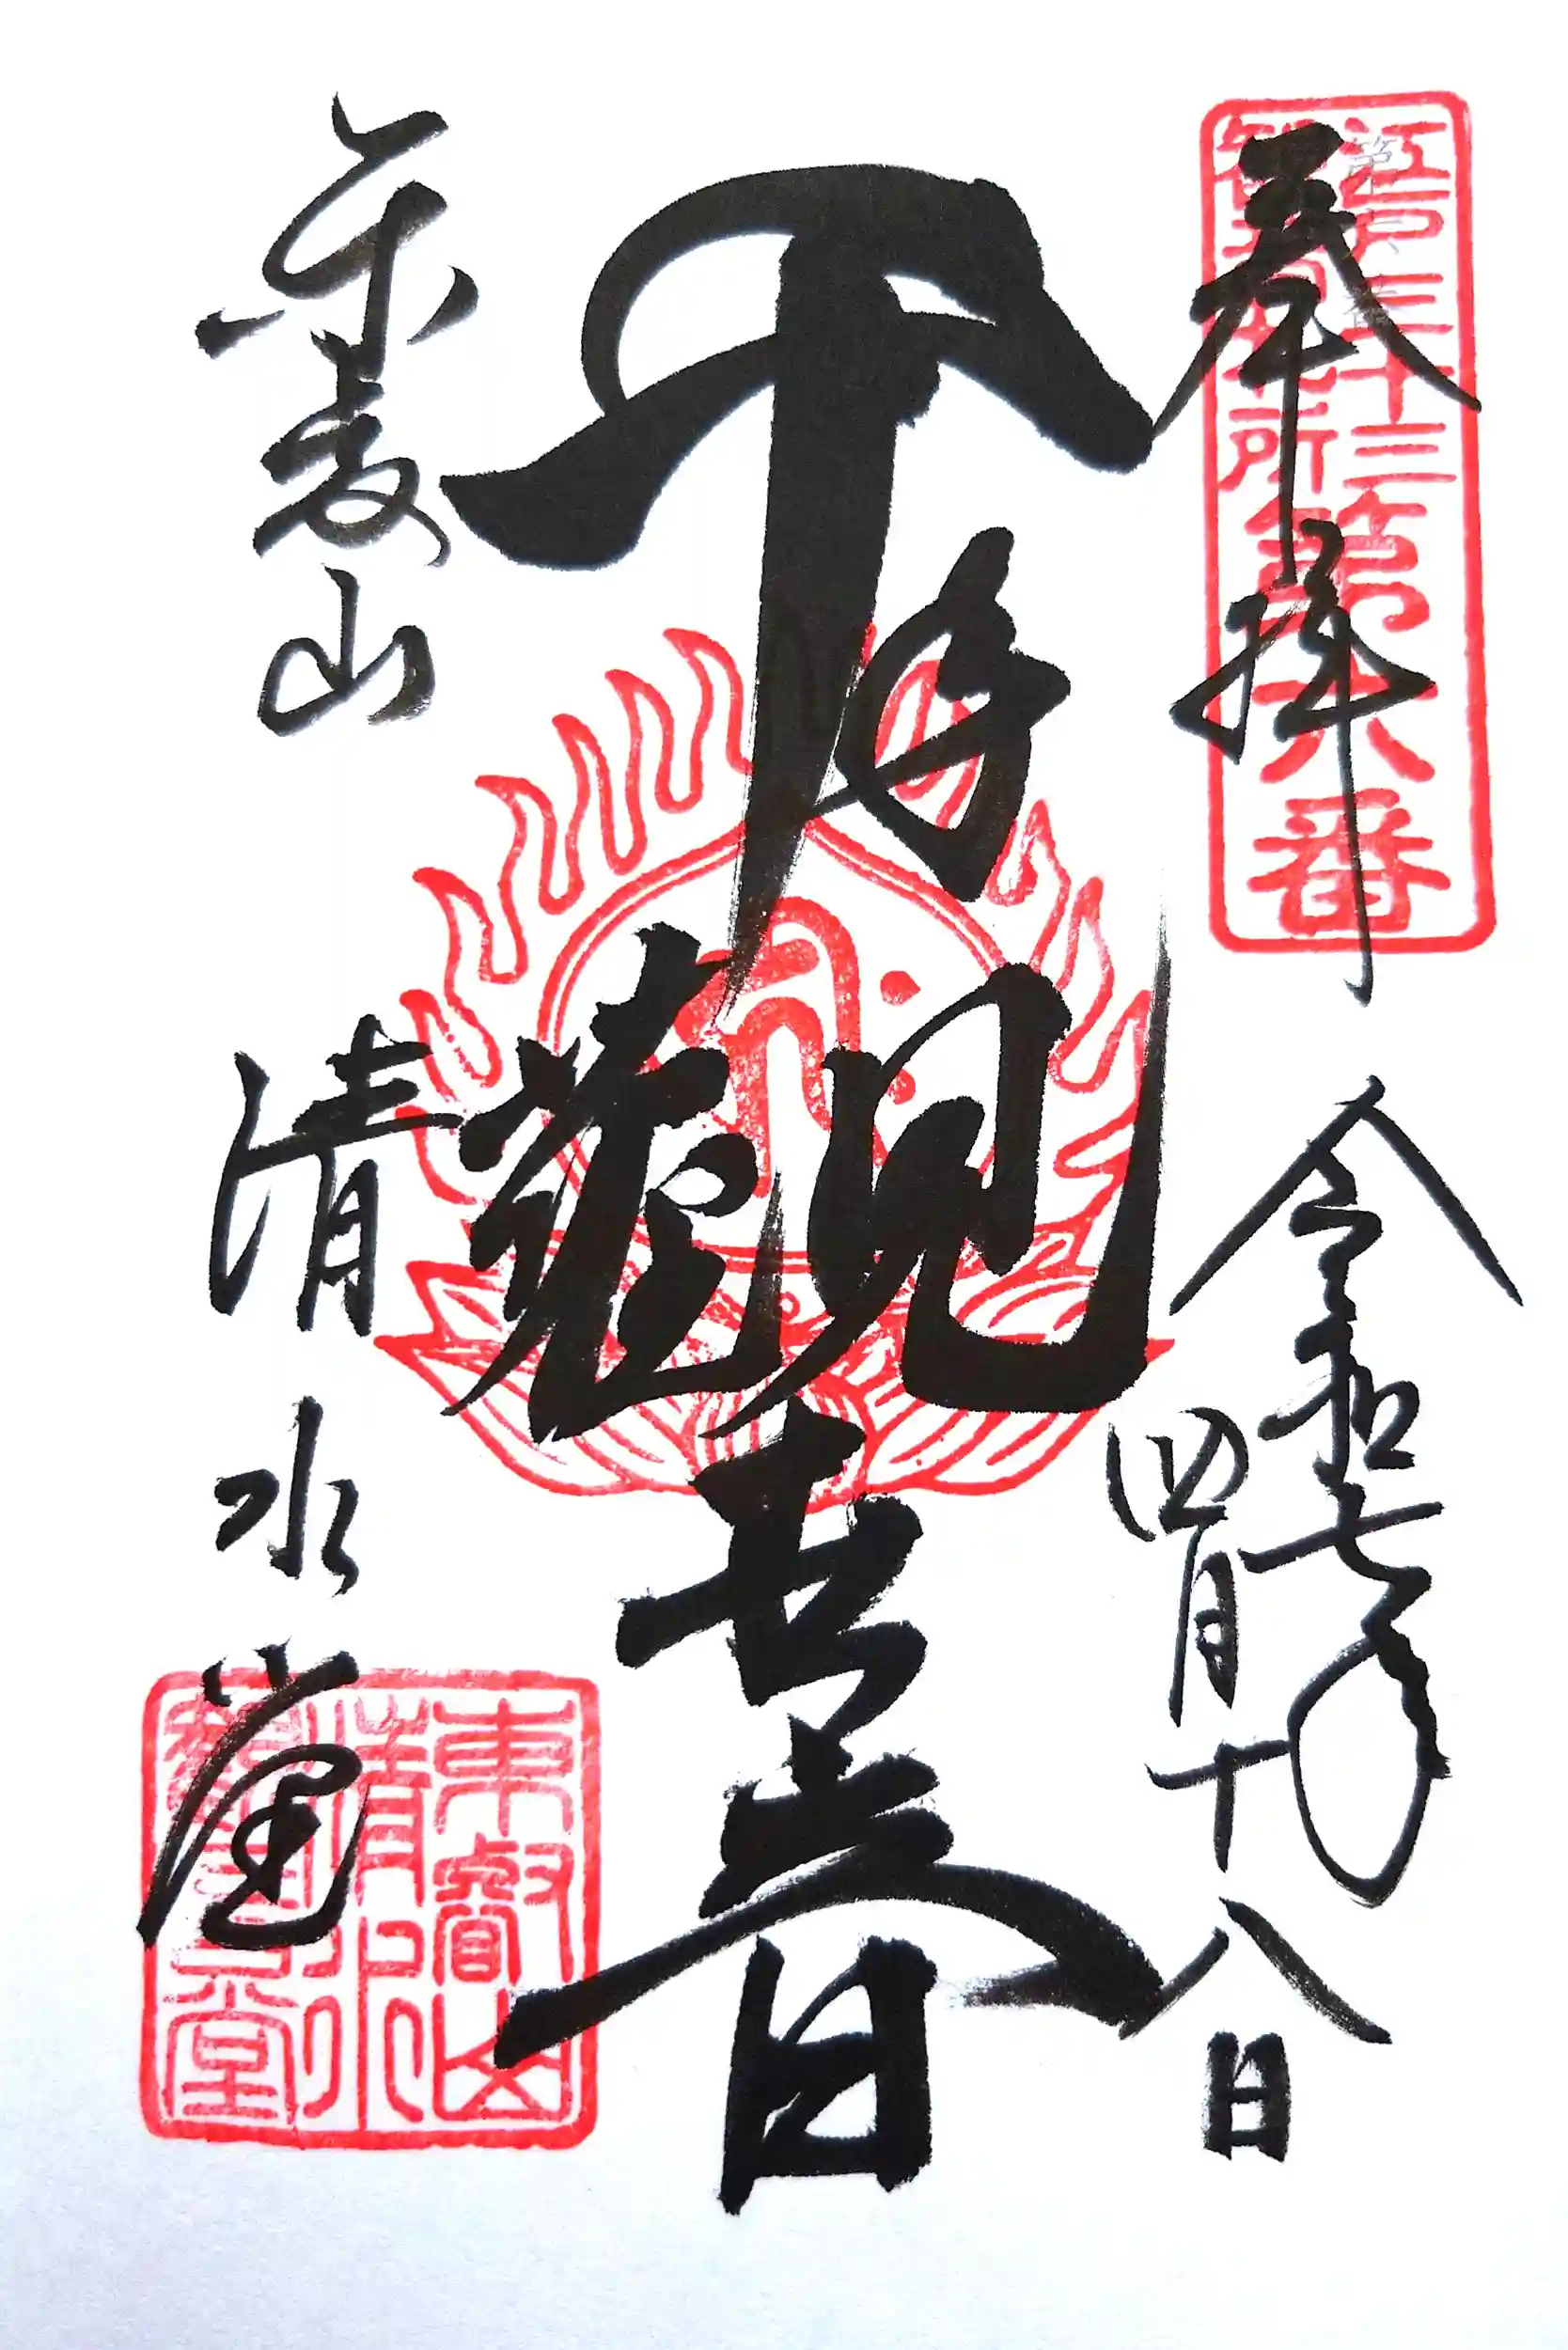 奉拝
江戸三十三
観音札所
第六番
令和七年
四月十八日
千手觀世音
東叡山
清水堂
東叡山
清水
觀音堂